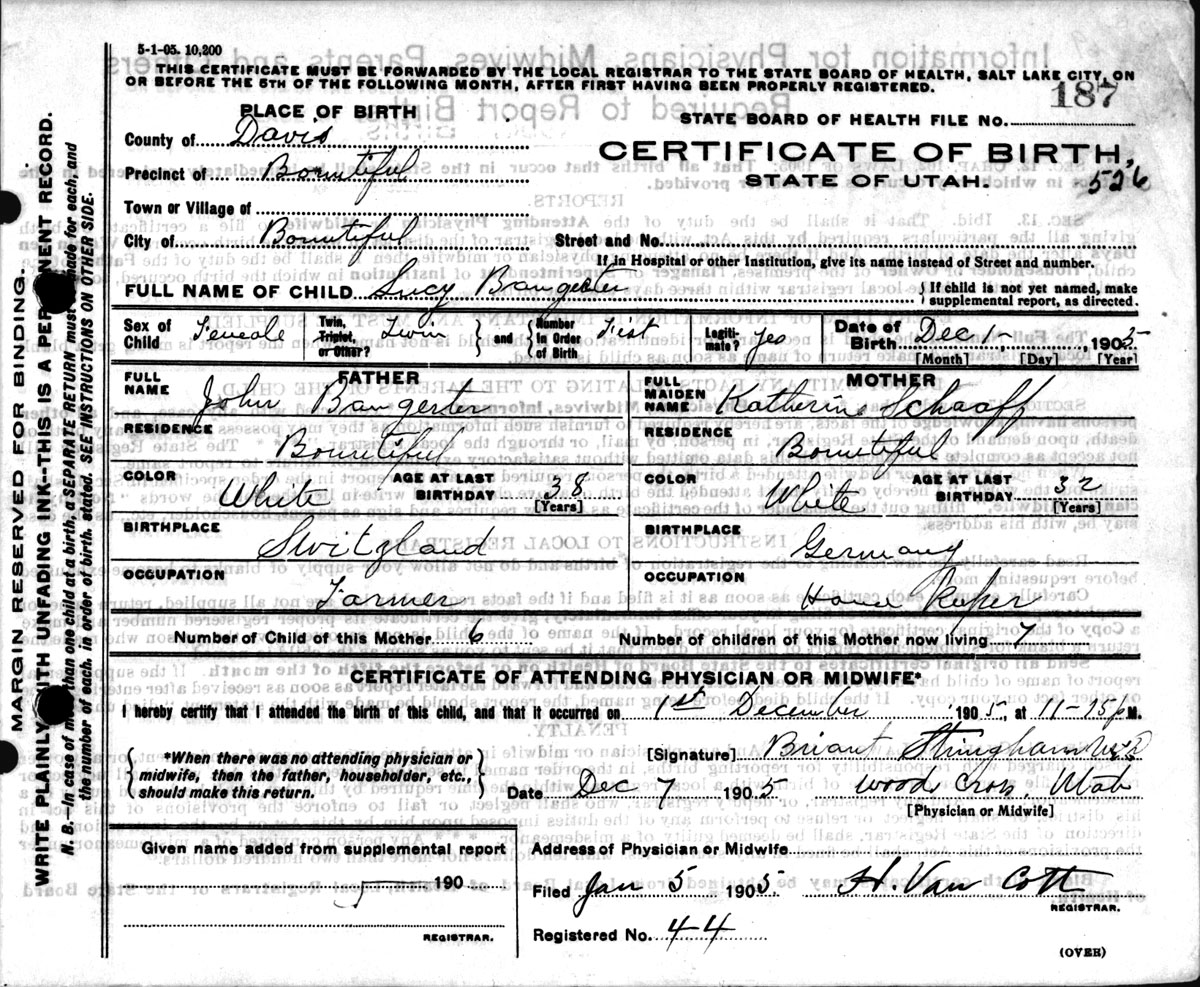 5-1-05. 10,200
THIS CERTIFICATE MUST BE FORWARDED BY THE LOCAL REGISTRAR TO THE STATE BOARD OF HEALTH, SALT LAKE CITY, ON
OR BEFORE THE 5TH OF THE FOLLOWING MONTH, AFTER FIRST HAVING BEEN PROPERLY REGISTERED.
187
PLACE OF BIRTH
STATE BOARD OF HEALTH FILE NO.
County of Davis
CERTIFICATE OF BIRTH,
Precinct of Bountiful
STATE OF UTAH.
526
Town or Village of
City of Bountiful
Street and No.
If in Hospital or other Institution, give its name instead of Street and number.
FULL NAME OF CHILD Lucy Bangerter
{ If child is not yet named, make
supplemental report, as directed.
Sex of Child Female
Twin, Triplet, or Other? Twin } and { Number in Order of Birth First
Legitimate? Yes
Date of Birth Dec 1-, 1905
[Month] [Day] [Year]
FATHER
MOTHER
FULL NAME John Bangerter
FULL MAIDEN NAME Katherine Schaaff
RESIDENCE Bountiful
RESIDENCE Bountiful
COLOR White AGE AT LAST BIRTHDAY 38 [Years]
COLOR White AGE AT LAST BIRTHDAY 32 [Years]
BIRTHPLACE Switzland
BIRTHPLACE Germany
OCCUPATION Farmer
OCCUPATION House Keeper
Number of Child of this Mother 6 Number of children of this Mother now living 7
CERTIFICATE OF ATTENDING PHYSICIAN OR MIDWIFE*
I hereby certify that I attended the birth of this child, and that it occurred on 1st December 1905, at 11-15 p M.
{ *When there was no attending physician or
midwife, then the father, householder, etc.,
should make this return. }
[Signature] Briant Stringham M.D
Date Dec 7 1905 Woods Cross, Utah
[Physician or Midwife]
Given name added from supplemental report
190
REGISTRAR.
Address of Physician or Midwife
Filed Jan 5 1905 H. Van Cott
REGISTRAR.
Registered No. 44
(OVER)
MARGIN RESERVED FOR BINDING.
WRITE PLAINLY WITH UNFADING INK--THIS IS A PERMANENT RECORD.
N. B.--In case of more than one child at a birth, a SEPARATE RETURN must be made for each, and
the number of each, in order of birth, stated. SEE INSTRUCTIONS ON OTHER SIDE.